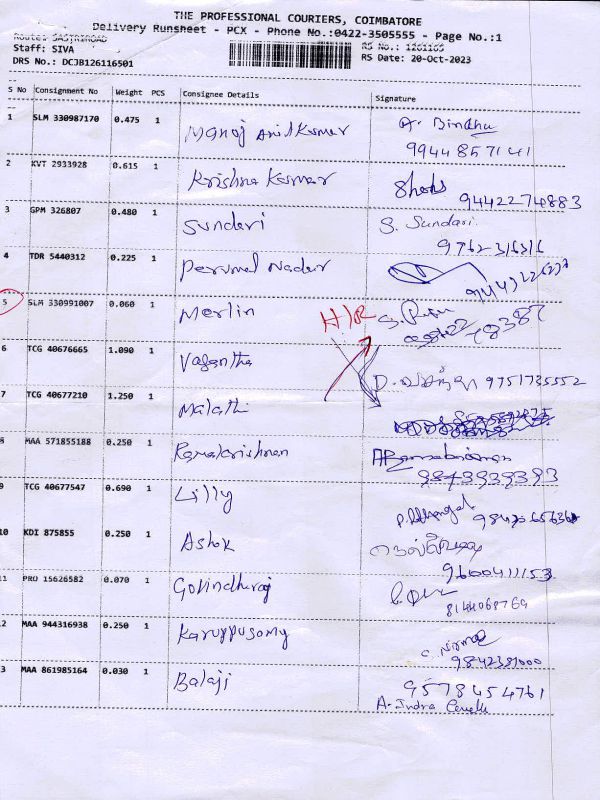 THE PROFESSIONAL COURIERS, COIMBATORE
Delivery Runsheet - PCX - Phone No.:0422-3505555 - Page No.:1
Route: SASTRIROAD
RS No.: 1261165
Staff: SIVA
RS Date: 20-Oct-2023
DRS No.: DCJB126116501
S No Consignment No Weight PCS Consignee Details Signature
1 SLM 330987170 0.475 1 Manoj Anil Kumar A. Bindhu
9944857141
2 KVT 2933928 0.615 1 Krishna Kumar
9442274883
3 GPM 326807 0.480 1 Sundari S. Sundari
9762316316
4 TDR 5440312 0.225 1 Perumal Nadar
5 SLM 330991007 0.060 1 Merlin H/R
6 TCG 40676665 1.090 1 Vasantha
D. வசந்தா 9751735552
7 TCG 40677210 1.250 1 Malathi
8 MAA 571855188 0.250 1 Ramakrishnan
9843939393
9 TCG 40677547 0.690 1 Lilly
10 KDI 875855 0.250 1 Ashok
9600411153
11 PRO 15626582 0.070 1 Govindharaj
8144068769
12 MAA 944316938 0.250 1 Karuppusamy
9842381000
13 MAA 861985164 0.030 1 Balaji 9578454761
A. Indra